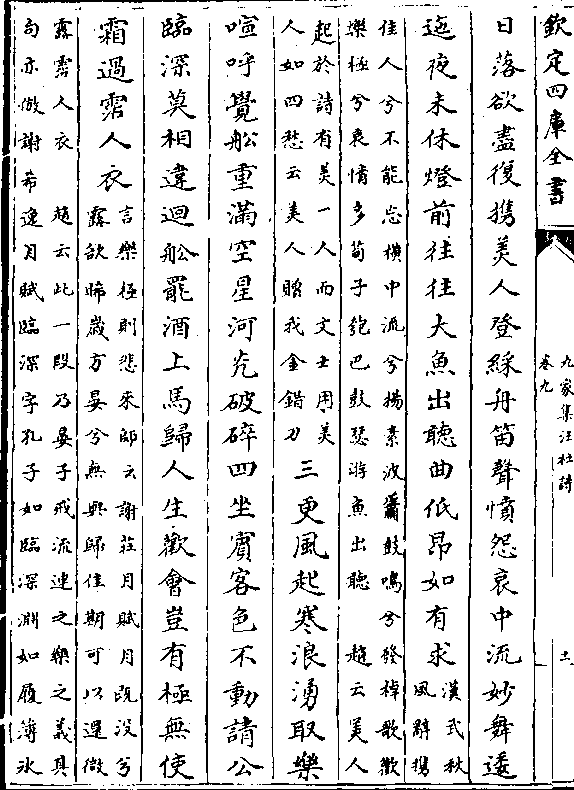 欽定四庫全書
九家集注杜詩
卷九
十一
日落欲盡復攜美人登綵舟笛聲憤怨哀中流妙舞逶
迤夜未休燈前往往大魚出聽曲低昂如有求
漢武秋
風辭攜
佳人兮不能忘橫中流兮揚素波簫鼓鳴兮發棹歌歡
樂極兮哀情多荀子匏巴鼓瑟游魚出聽 趙云美人
起於詩有美一人而文士用美
人如四愁云美人贈我金錯刀
三更風起寒浪湧取樂
喧呼覺舩重滿空星河光破碎四坐賓客色不動請公
臨深莫相違迴舩罷酒上馬歸人生歡會豈有極無使
霜過霑人衣
言樂極則悲來師云謝莊月賦月既没兮
露欲晞歲方晏兮無與歸佳期可以還微
露霑人衣 趙云此一段乃晏子戒流連之樂之義具
句亦倣謝希逸月賦臨深字孔子如臨深淵如履薄冰